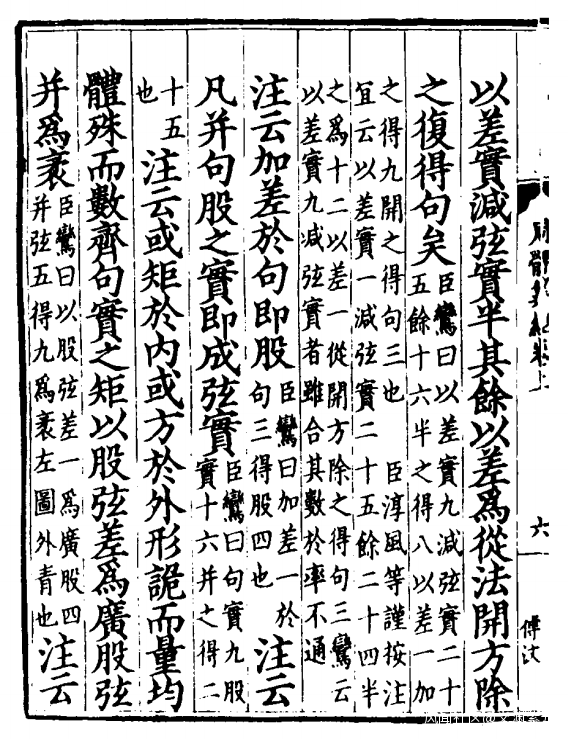 周髀算經卷上 六
以差實減弦實半其餘以差爲從法開方除
之復得句矣臣鸞曰以差實九減弦實二十
五餘十六半之得八以差一加
之得九開之得句三也 臣淳風等謹按注
宜云以差實一減弦實二十五餘二十四半
之爲十二以差一從開方除之得句三鸞云
以差實九減弦實者雖合其數於率不通
注云加差於句即股臣鸞曰加差一於
句三得股四也注云
凡并句股之實即成弦實臣鸞曰句實九股
實十六并之得二
十五
也注云或矩於內或方於外形詭而量均
體殊而數齊句實之矩以股弦差爲廣股弦
并爲袤臣鸞曰以股弦差一爲廣股四
并弦五得九爲袤左圖外青也注云